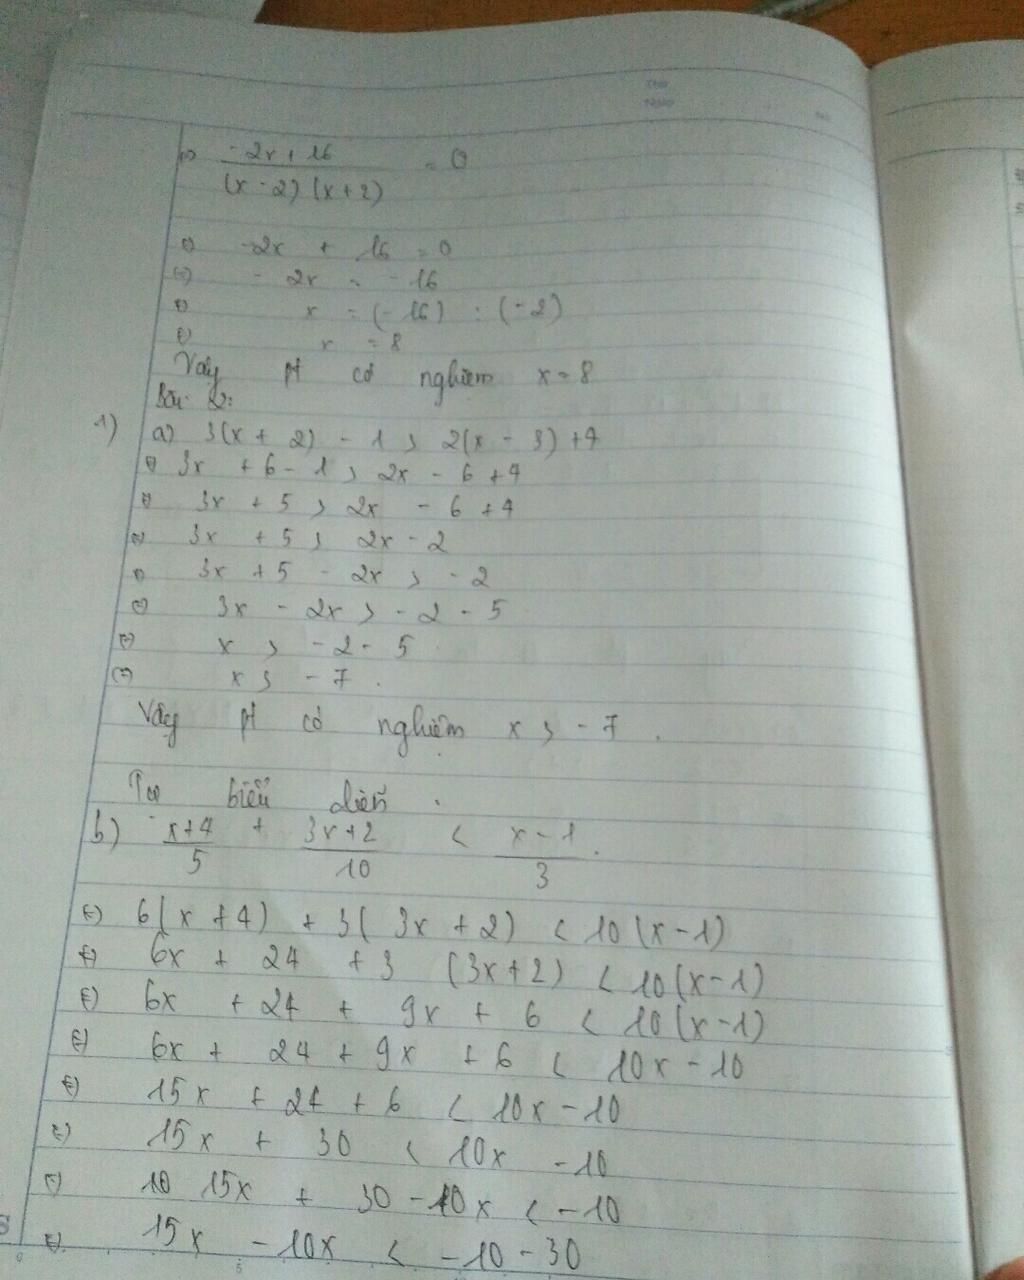 ⇔ -2x+16 / (x-2)(x+2) = 0
⇔ -2x + 16 = 0
⇔ -2x = -16
⇔ x = (-16) : (-2)
⇔ x = 8
Vậy pt có nghiệm x = 8
Bài 2:
1) a) 3(x + 2) - 1 > 2(x - 3) + 4
⇔ 3x + 6 - 1 > 2x - 6 + 4
⇔ 3x + 5 > 2x - 6 + 4
⇔ 3x + 5 > 2x - 2
⇔ 3x + 5 - 2x > -2
⇔ 3x - 2x > -2 - 5
⇔ x > -2 - 5
⇔ x > -7.
Vậy pt có nghiệm x > -7.
Tự biểu diễn.
b) x+4 / 5 + 3x+2 / 10 < x-1 / 3.
⇔ 6(x + 4) + 3(3x + 2) < 10(x-1)
⇔ 6x + 24 + 3 (3x+2) < 10(x-1)
⇔ 6x + 24 + 9x + 6 < 10(x-1)
⇔ 6x + 24 + 9x + 6 < 10x - 10
⇔ 15x + 24 + 6 < 10x - 10
⇔ 15x + 30 < 10x - 10
⇔ 10 15x + 30 - 10x < -10
⇔ 15x - 10x < -10 - 30